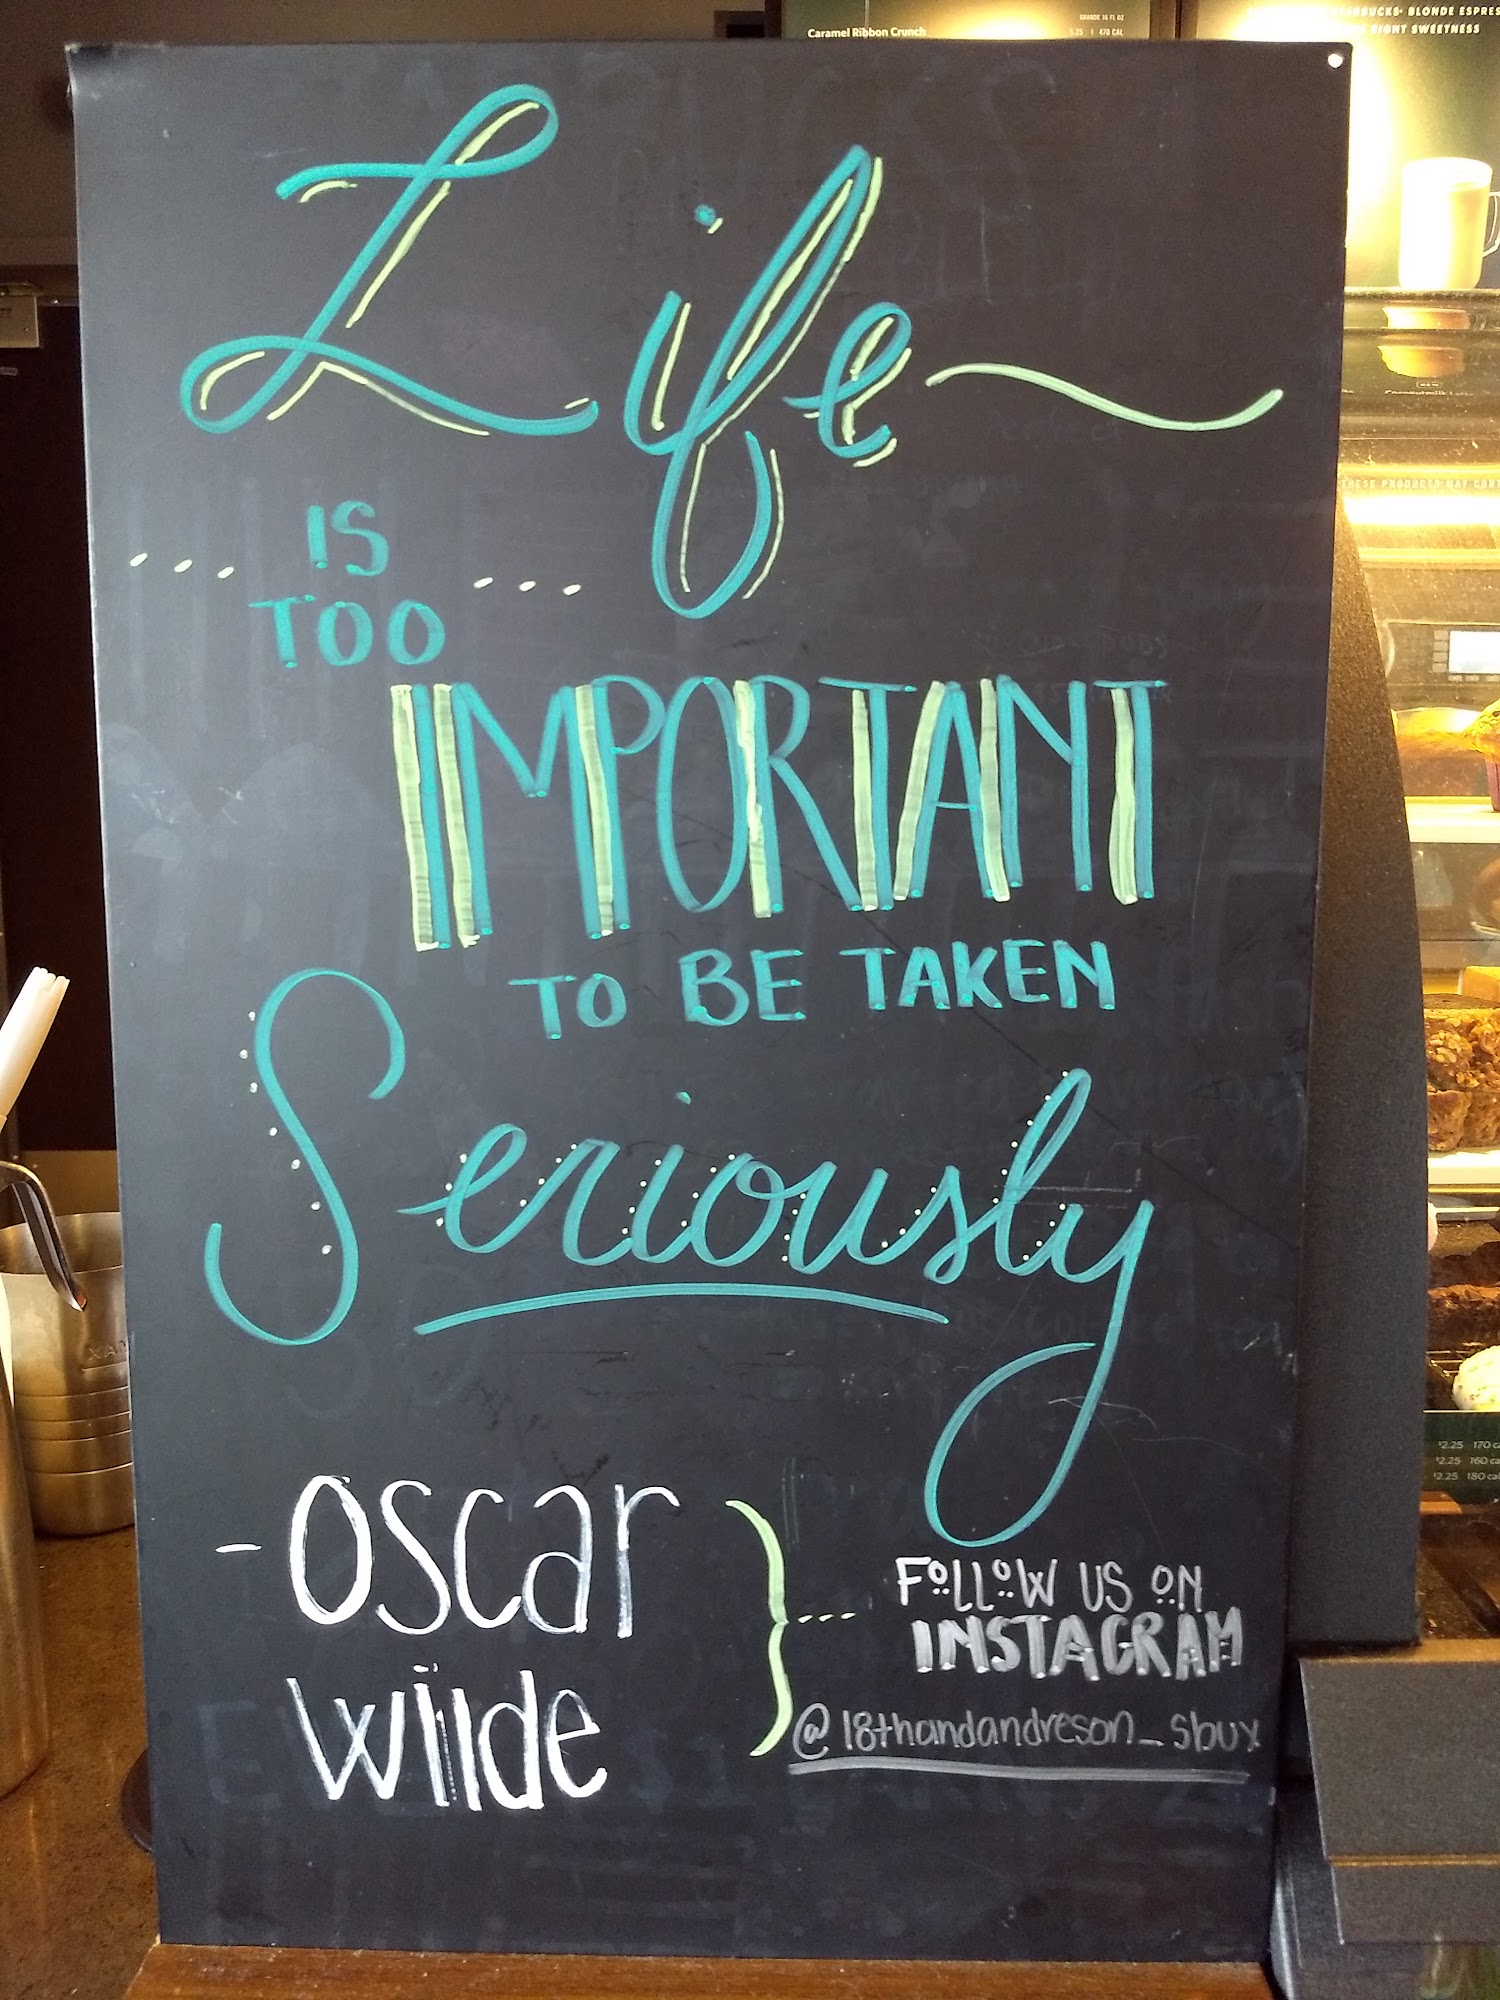 Caramel Ribbon Crunch
GRANDE 16 FL OZ
5.25 | 470 CAL
BLONDE ESPRE
RIGHT SWEETNESS
Life
IS
TOO
IMPORTANT
TO BE TAKEN
Seriously
- oscar
wilde
FOLLOW US ON
INSTAGRAM
@18thandandreson_sbux
THESE PRODUCTS MAY CONT
$2.25 170 ca
$2.25 160 ca
$2.25 180 cal